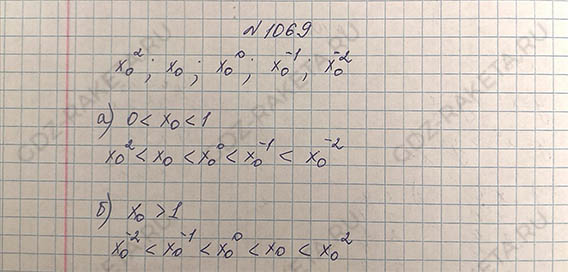 №1069
x₀²; x₀; x₀⁰; x₀⁻¹; x₀⁻²
а) 0 < x₀ < 1
x₀² < x₀ < x₀⁰ < x₀⁻¹ < x₀⁻²
б) x₀ > 1
x₀⁻² < x₀⁻¹ < x₀⁰ < x₀ < x₀²
GDZ-RAKETA.RU
GDZ-RAKETA.RU
GDZ-RAKETA.RU
GDZ-RAKETA.RU